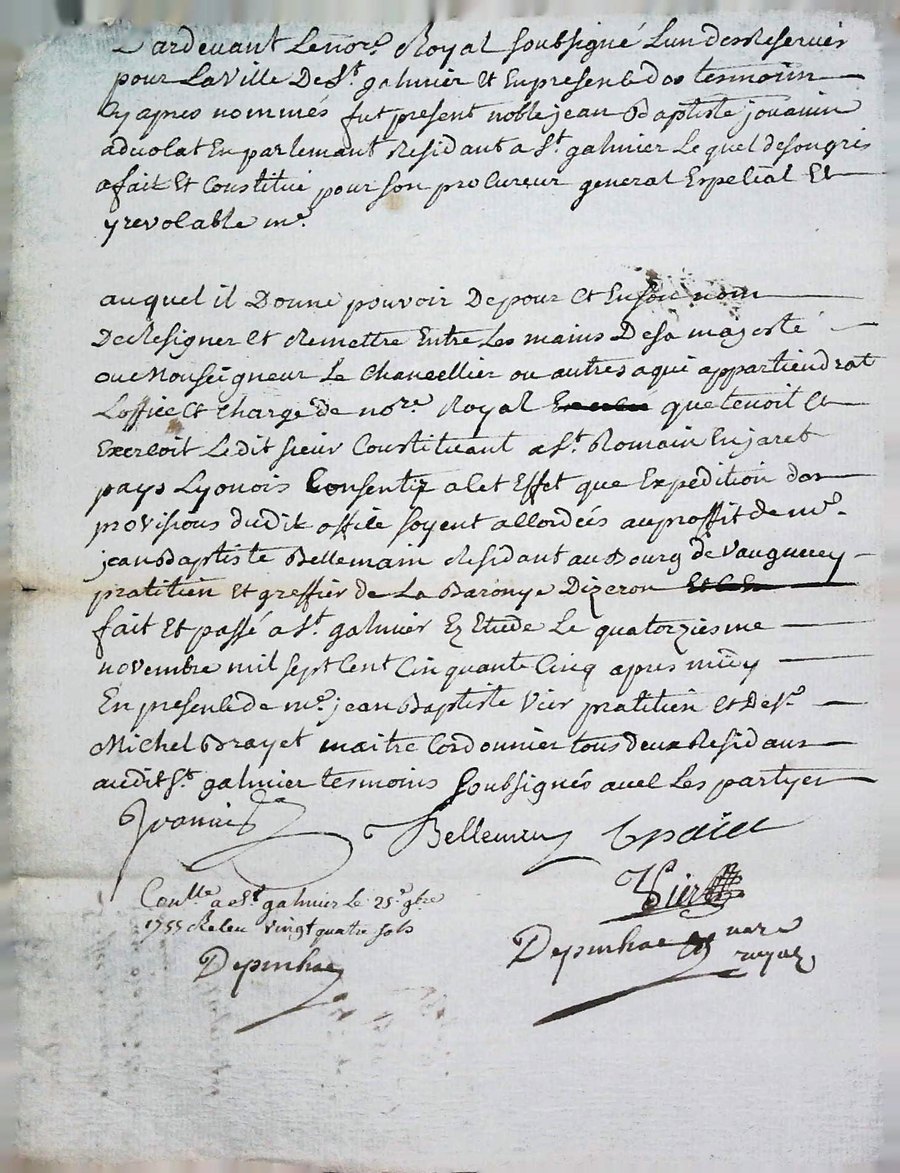 Pardevant Le nore. Royal soubsigné Lun des Reservés
pour La ville De St. galmier Et En presence des tesmoins
Cy apres nommés fut present noble jean Baptiste jouanin
advocat En parlemant Residant a St. galmier Le quel de son gres
a fait Et Constitué pour son procureur general Especial Et
yrevocable me.
auquel il Donne pouvoir De pour Et En son nom
De Resigner et Remettre Entre Les mains De sa majesté
ou Monseigneur Le Chancellier ou autres a qui appartiendrat
Loffice Et Charge de nore. Royal que tenoit Et
Exercoit Ledit sieur Constituant a St. Romain En jaret
pays Lyonois Consentir a cet Effet que Expedition des
provisions dudit office soyent accordées au proffit de me.
jean Baptiste Bellemain Residant au Bourg de Vaugneray
pratitien Et greffier de La Baronye Dizeron
fait Et passé a St. galmier Ez Etude Le quatorziesme
novembre mil sept Cent Cinquante Cinq apres midy
En presence de me. jean Baptiste Vier pratitien et De sr.
Michel Brayet maitre Cordonnier tous deux Residans
audit St. galmier tesmoins soubsignés avec Les partyes
Jvanin Bellemain
Vier
Conlle a St. galmier Le 25e. 9bre
1755 Receu vingt quatre sols
Depinhac Depinhac nore
royal